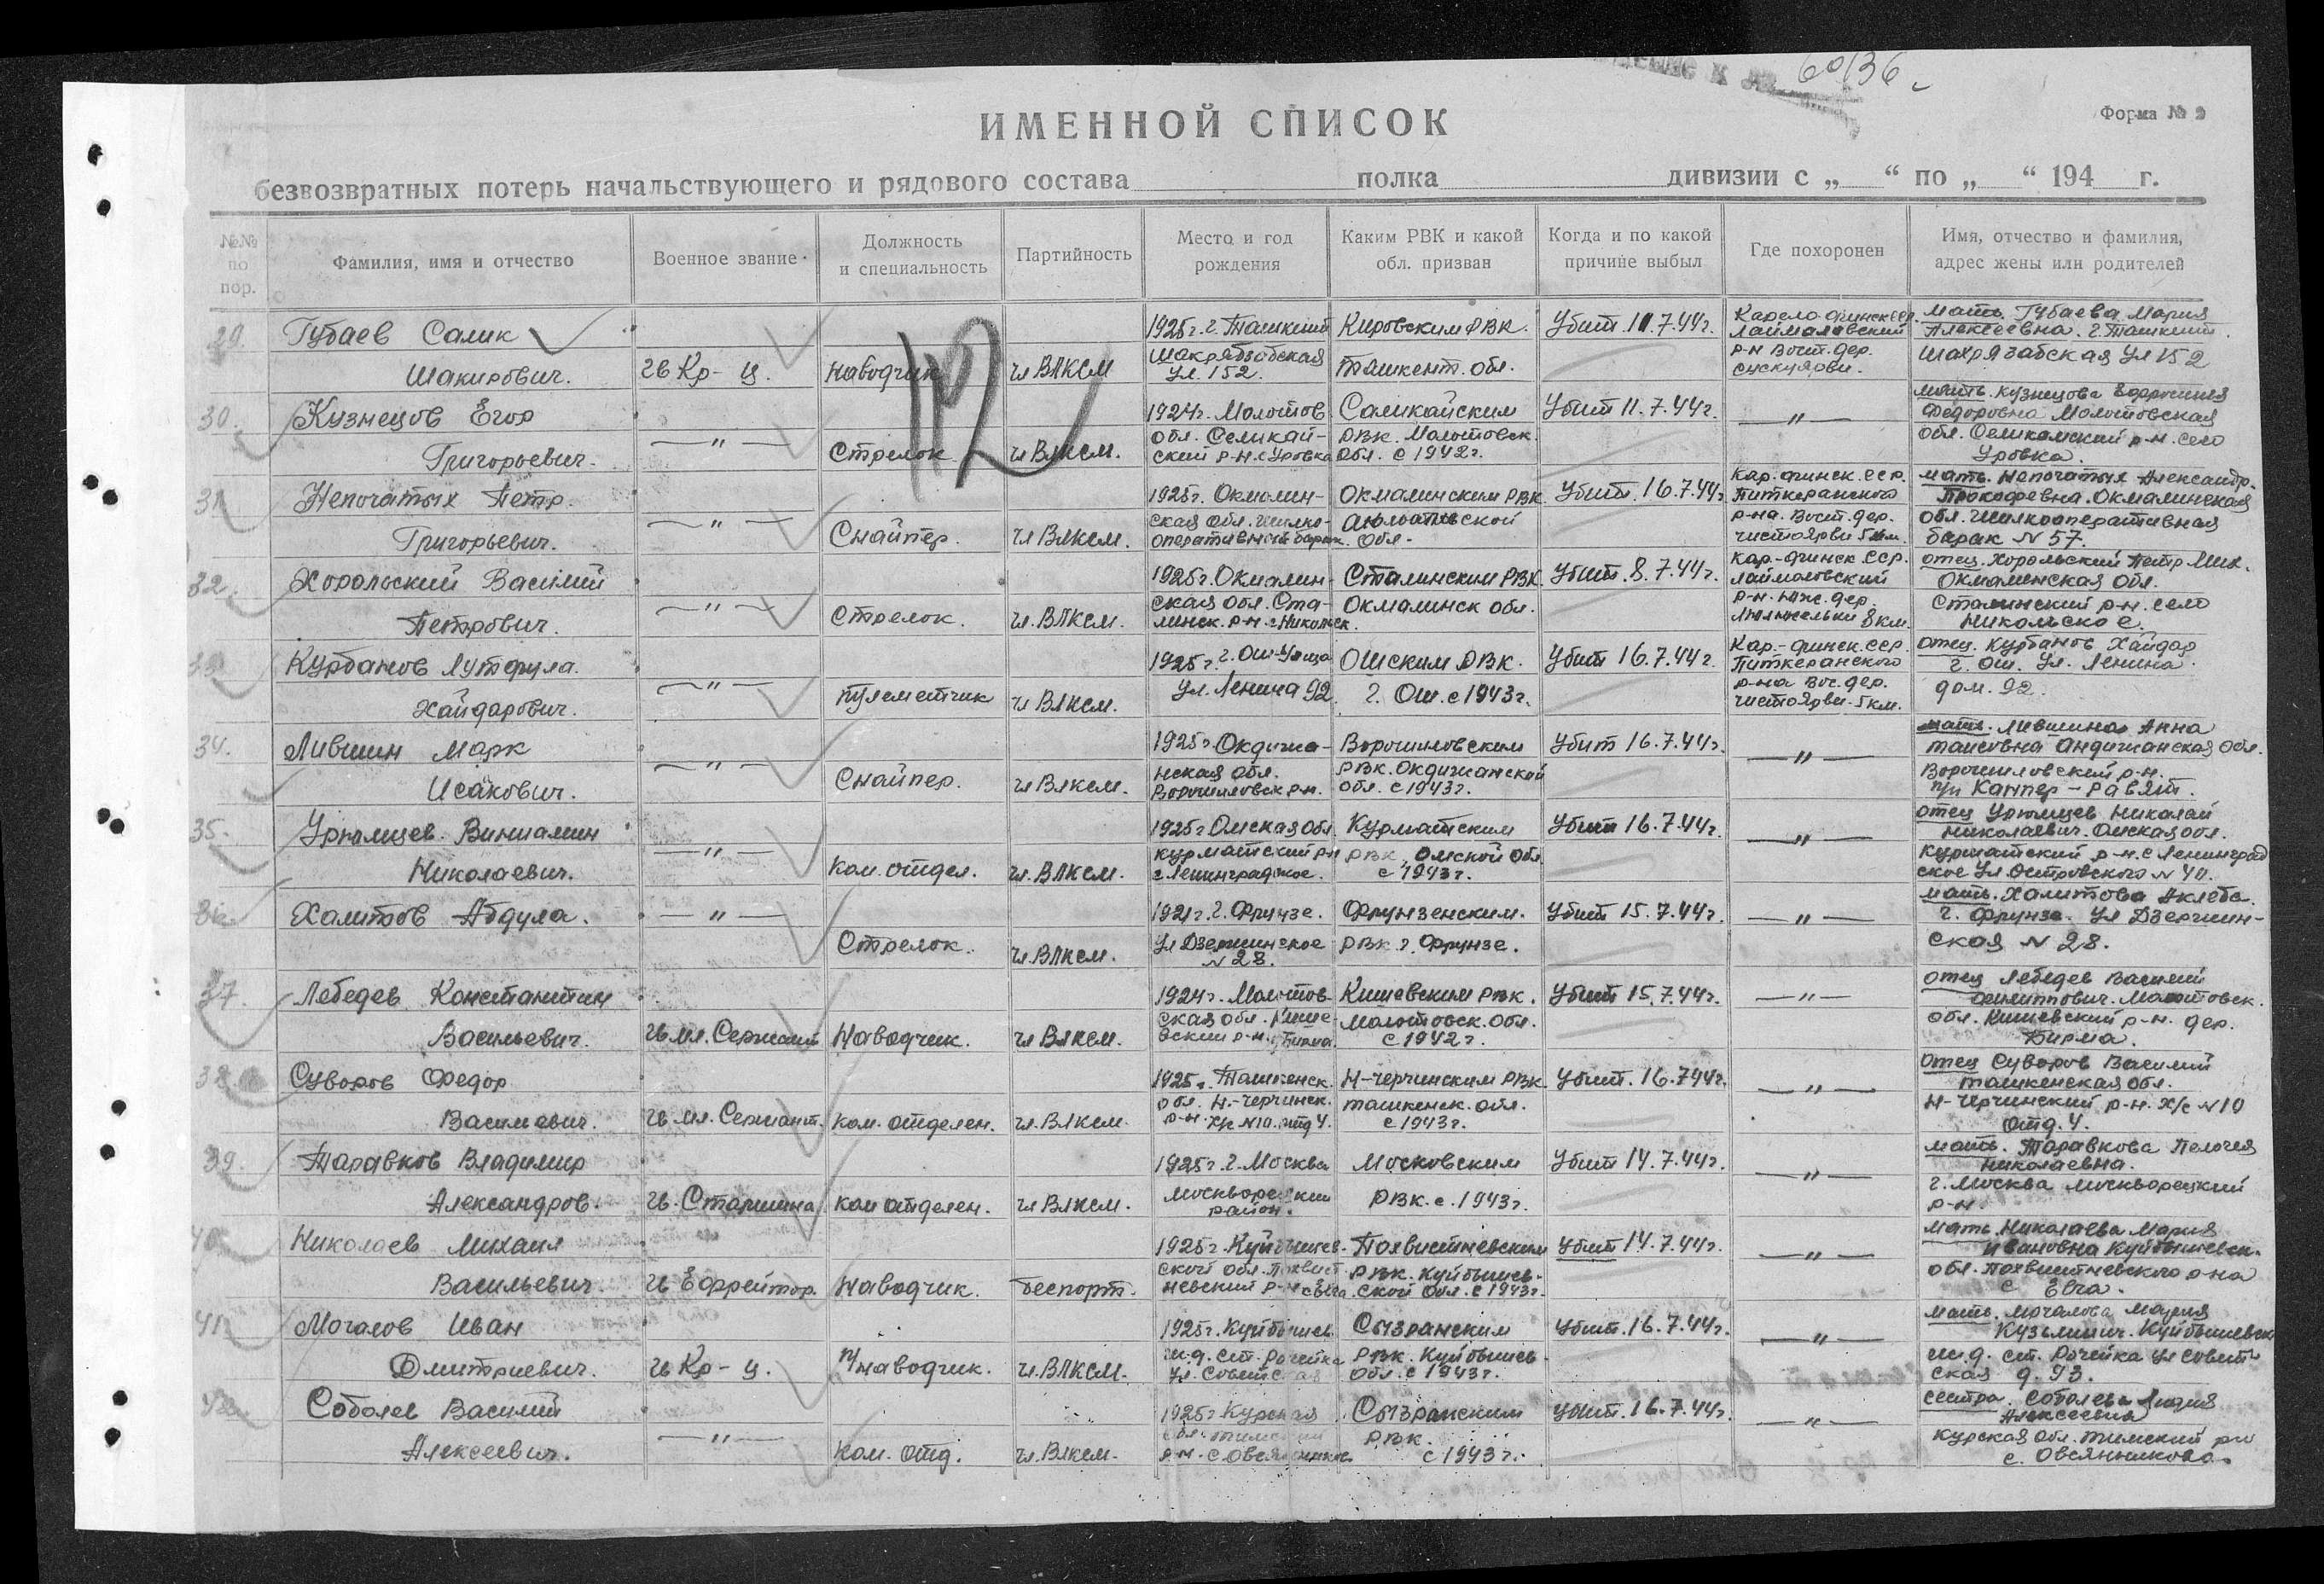 60136
Форма № 2
ИМЕННОЙ СПИСОК
безвозвратных потерь начальствующего и рядового состава полка дивизии с „ “ по „ “ 194 г.
№№ по пор.
Фамилия, имя и отчество
Военное звание
Должность и специальность
Партийность
Место и год рождения
Каким РВК и какой обл. призван
Когда и по какой причине выбыл
Где похоронен
Имя, отчество и фамилия, адрес жены или родителей
112
29. Губаев Салик Шакирович. гв Кр-ц. наводчик чл ВЛКСМ 1925г. г. Ташкент ул. 152. Кировским РВК. Ташкент. обл. Убит 11.7.44г. Карело-финск ССР. р-н Вост. дер. мать Губаева Мария Алексеевна. г. Ташкент. ул 152
30. Кузнецов Егор Григорьевич. —"— Стрелок чл ВЛКСМ. 1924г. Молотов. обл. Селикай-ский р-н. с Уровка Саликайским РВК. Молотовск. обл. с 1942г. Убит 11.7.44г. —"— мать. Кузнецова Федоровна Молотовская обл. р-н. село Уровка.
31 Непочатых Петр. Григорьевич. —"— Снайпер. чл ВЛКСМ. 1925г. Окмолин-ская обл. барак. Окмалинским РВК обл. Убит. 16.7.44г. Кар. финск. ССР. Питкеранского р-на. Вост. дер. 5 км. мать. Непочатых Александр. Прокофевна. Окмалинская обл. барак № 57.
32. Хорольский Василий Петрович. —"— Стрелок. чл. ВЛКСМ. 1925г. Окмалин-ская обл. Ста-линск. р-н. с Никольск. Сталинским РВК. Окмалинск обл. Убит. 8.7.44г. Кар-финск. ССР. р-н. юж. дер. 8 км. отец. Хорольский Петр Мих. Окмалинская обл. Сталинский р-н. село Никольское.
33 Курбанов Лутфула. Хайдарович. —"— пулеметчик чл ВЛКСМ. 1925г. г. Ош ул. Ленина 92. Ошским РВК. г. Ош. с 1943г. Убит 16.7.44г. Кар.-финск. ССР. Питкеранского р-на Вос. дер. 5 км. отец. Курбанов Хайдар г. Ош. ул. Ленина. дом. 92.
34. Лившин Марк Исакович. —"— Снайпер. чл ВЛКСМ. 1925г. Окдижа-нская обл. Ворошиловск р-н. Ворошиловским РВК. Окдижанской обл. с 1943г. Убит 16.7.44г. —"— мать. Лившина Анна Андижанская обл. Ворошиловский р-н. п/п
35. Урюмцев. Виниамин Николаевич. —"— ком. отдел. чл. ВЛКСМ. 1925г Омская обл. Курматский р-н с Ленинградское. Курматским РВК. Омской обл. с 1943г. Убит 16.7.44г. —"— отец Урюмцев Николай Николаевич. Омская обл. Курматский р-н. с Ленинградское ул. Островского № 40.
36. Халитов Абдула. —"— Стрелок. чл ВЛКСМ. 1921г. г. Фрунзе. ул Дзержинское № 28. Фрунзенским. РВК г. Фрунзе. Убит 15.7.44г. —"— мать. Халитова г. Фрунзе. ул Дзержин-ская № 28.
37. Лебедев Константин Васильевич. гв мл. Сержант Наводчик. чл ВЛКСМ. 1924г. Молотов-ская обл. Кише-вский р-н. Кишевским РВК. Молотовск. обл. с 1942г. Убит 15.7.44г. —"— отец Лебедев Василий Филиппович. Молотовск. обл. Кишевский р-н. дер. Бирма.
38. Суворов Федор Василевич. гв мл. Сержант. ком. отделен. чл. ВЛКСМ. 1925г. Ташкенск. обл. Н.-Черчинск. р-н. х/с №10. отд 4. Н-Черчинским РВК. Ташкенск. обл. с 1943г. Убит. 16.7.44г. —"— Отец Суворов Василий Ташкенская обл. Н-Черчинский р-н. х/с №10 отд. 4.
39. Таравков Владимир Александров. гв. Старшина ком отделен. чл ВЛКСМ. 1925г. г. Москва Москворецкий район. Московским РВК. с. 1943г. Убит 14.7.44г. —"— мать. Таравкова Николаевна. г. Москва Москворецкий р-н.
40. Николаев Михаил Васильевич. гв Ефрейтор. Наводчик. беспарт. 1925г. Куйбышев-ской обл. Похвист-невский р-н с Ега Похвистневским РВК. Куйбышев-ской обл. с 1943г. Убит 14.7.44г. —"— мать. Николаева Мария Ивановна Куйбышевск. обл. Похвистневского р-на с Ега.
41 Мочалов Иван Дмитриевич. гв Кр-ц. п/наводчик. чл. ВЛКСМ. 1925г. Куйбышев ж.д. ст. Рачейка ул. Советская Сызранским РВК. Куйбышев. обл. с 1943г. Убит. 16.7.44г. —"— мать. Мочалова Мария Кузьминич. Куйбышевск ж.д. ст. Рачейка ул Советская д. 93.
42 Соболев Василий Алексеевич. —"— ком. отд. чл. ВЛКСМ. 1925г Курская обл. Тимский р-н. с Овсянников Сызранским РВК. с 1943г. Убит. 16.7.44г. —"— сестра. Соболева Лидия Алексеевна Курская обл. Тимский р-н с. Овсянниково.